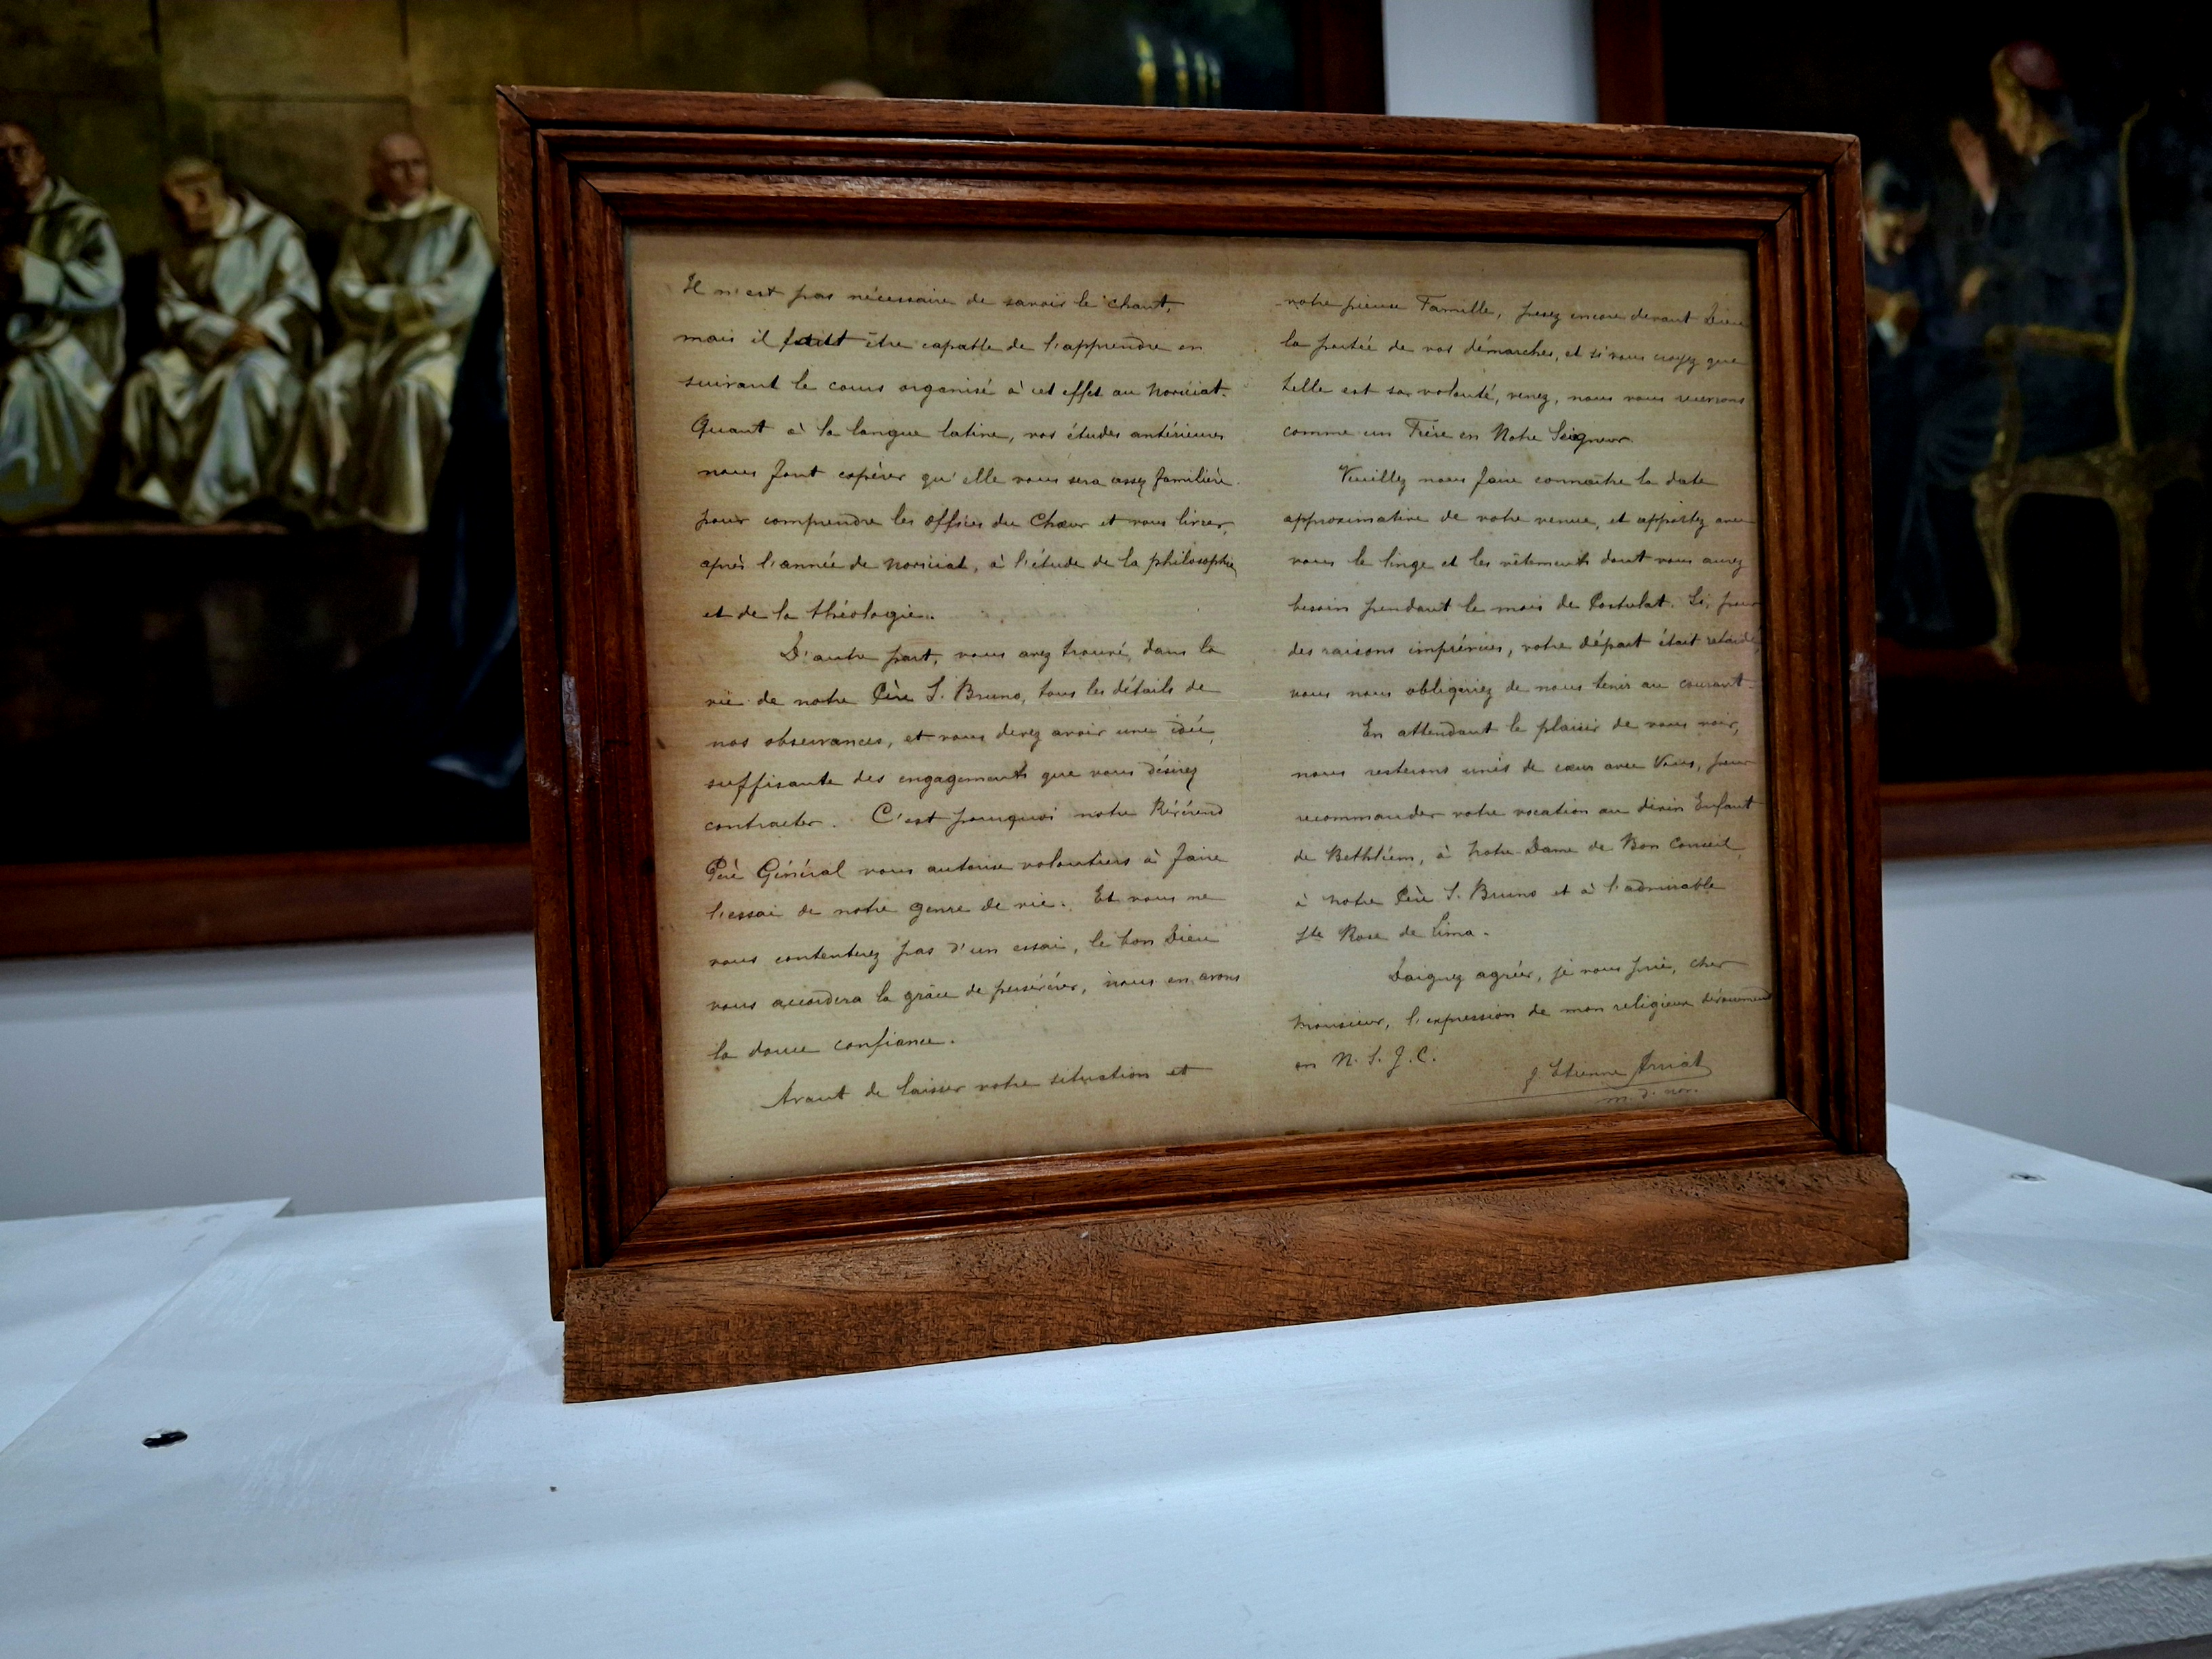 Il n'est pas nécessaire de savoir le chant,
mais il faut être capable de l'apprendre en
suivant le cours organisé à cet effet au Noviciat.
Quant à la langue latine, vos études antérieures
nous font espérer qu'elle vous sera assez familière
pour comprendre les offices du Chœur et vous livrer,
après l'année de Noviciat, à l'étude de la philosophie
et de la théologie.
D'autre part, vous avez trouvé, dans la
vie de notre Père S. Bruno, tous les détails de
nos observances, et vous devez avoir une idée
suffisante des engagements que vous désirez
contracter. C'est pourquoi notre Révérend
Père Général vous autorise volontiers à faire
l'essai de notre genre de vie. Et vous ne
vous contenterez pas d'un essai, le bon Dieu
vous accordera la grâce de persévérer, nous en avons
la douce confiance.
Avant de laisser votre situation et
votre pieuse Famille, pesez encore devant Dieu
la portée de vos démarches, et si vous croyez que
telle est sa volonté, venez, nous vous recevrons
comme un Frère en Notre Seigneur.
Veuillez nous faire connaître la date
approximative de votre venue, et apportez avec
vous le linge et les vêtements dont vous aurez
besoin pendant le mois de Postulat. Si, pour
des raisons imprévues, votre départ était retardé,
vous nous obligeriez de nous tenir au courant.
En attendant le plaisir de vous voir,
nous resterons unis de cœur avec Vous, pour
recommander votre vocation au divin Enfant
de Bethléem, à Notre-Dame de Bon Conseil,
à notre Père S. Bruno et à l'admirable
Ste Rose de Lima.
Daignez agréer, je vous prie, cher
Monsieur, l'expression de mon religieux dévouement
en N. S. J. C.
f. Etienne Arriat
m. d. nov.